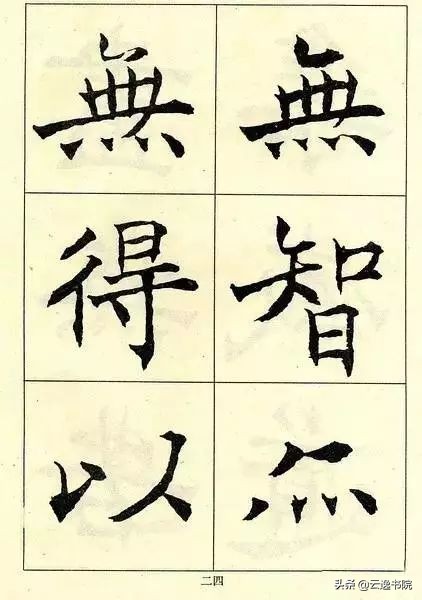 無智亦
無得以
二四
头条 @云逸书院